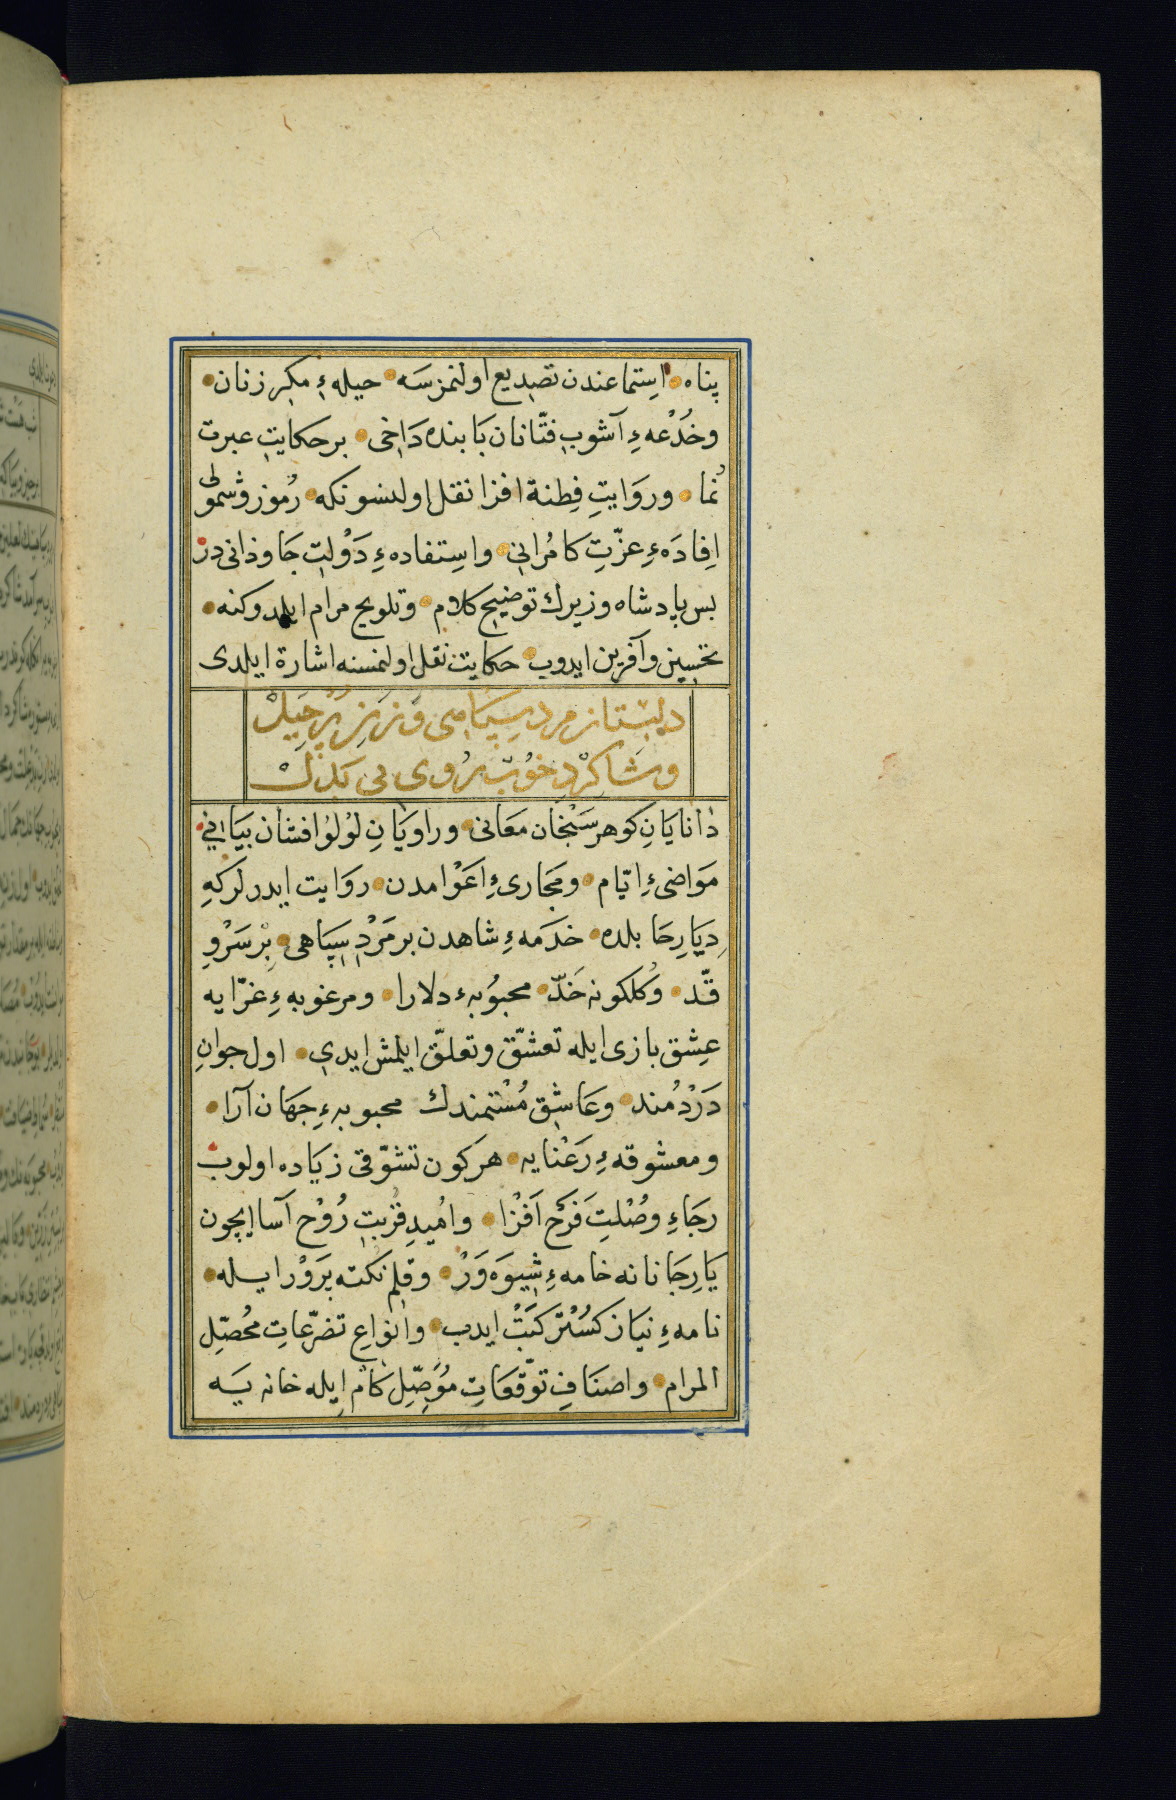 پناه استماعندن تصدیع اولنمزسه حیلهٔ مکر زنان
وخُدْعهءِ آشوبِ فتّانان بابنده دَاخی بر حکایتِ عبرت
نُما وروَایتِ فِطنة افزا نقل اولنسونکه رُموز وشمولی
اِفادَهءِ عزّتِ کامُرانی واِستفادهءِ دَوْلتِ جَاوذانی در
بس پادشاه وزیرك توضیح کلام وتلویح مرام ایلدوکنه
تحسین وآفرین ایدوب حکایت نقل اولنمسنه اشارة ایلدی
دلبستان مرد سپاهی وزن پُر حِیَلْ
وشَاکِرْدِ خُوبْ رُوی بی بَدَلْ
دانایَانِ کوهر سَنْجَان معَانی وراویَانِ لؤلؤ افشان بیَانی
مَواضیءِ ایّام ومجَاریءِ اَعْوامدن روَایت ایدرلر که
دِیَارِ حَابلده خدَمهءِ شاهدن بر مَرْدِ سِپَاهی بِرْ سَرْوِ
قَدّ وکُلکونه خَدّ محبُوبهء دلارا ومرغوبهءِ غرّایه
عِشق بازی ایله تعشّق وتعلّق ایلمش ایدی اول جوانِ
دَرْدْمُند وعَاشِق مُسْتمندك محبوبهءِ جهَان آرا
ومعشوقهءِ رَعْنایه هرکون تشوّقی زیَاده اولوب
رجَاءِ وصْلتِ فَرَح اَفْزا وامُیدِ قُربتِ رُوْح آسا ایچون
یَارِ جَانانه خامهءِ شِیوَه وَرْ وقلم نکته پَرَوْر ایله
نامهءِ نیَاز کسْتَر کَتْبْ ایدب وانْواعِ تضرّعاتِ محُصّلِ
المرام واصنَافِ توقّعَاتِ مُوَصِّلِ کامْ ایله خانه یَسه